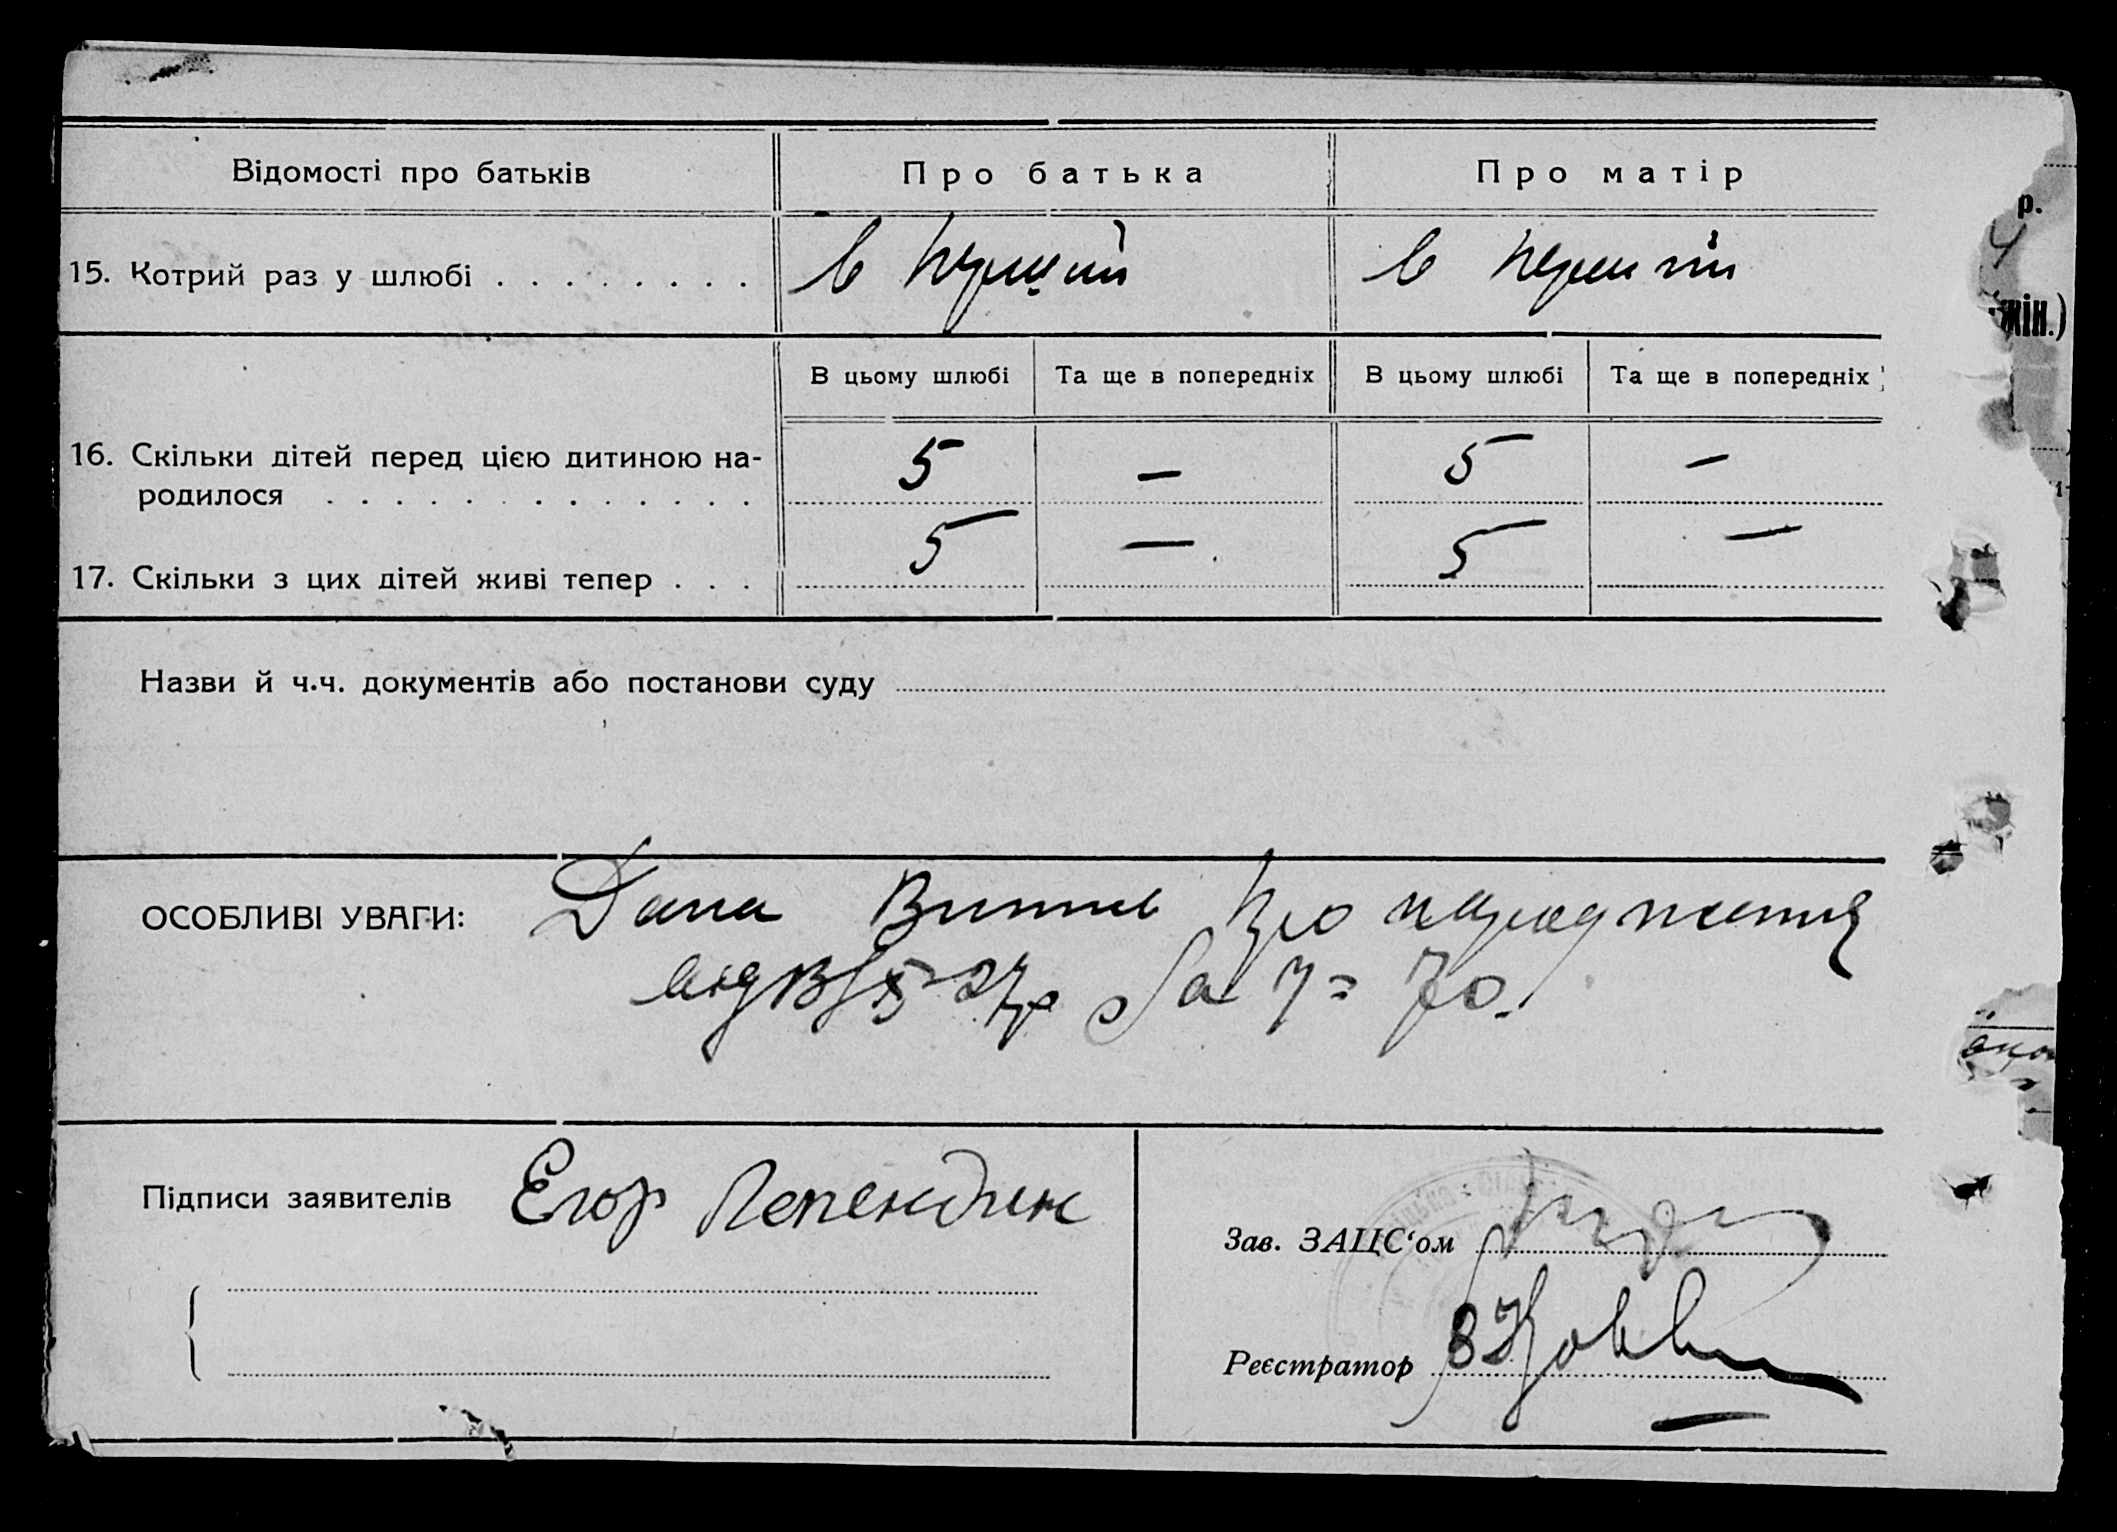 Відомості про батьків Про батька Про матір
р.
15. Котрий раз у шлюбі в перший в перший
жін.)
В цьому шлюбі Та ще в попередніх В цьому шлюбі Та ще в попередніх
16. Скільки дітей перед цією дитиною на-
родилося 5 — 5 —
17. Скільки з цих дітей живі тепер 5 — 5 —
Назви й ч.ч. документів або постанови суду
ОСОБЛИВІ УВАГИ: Дана Витпис про народження
за 7 = 70.
Підписи заявителів Егор Лепендин
Зав. ЗАЦС‘ом
Реєстратор